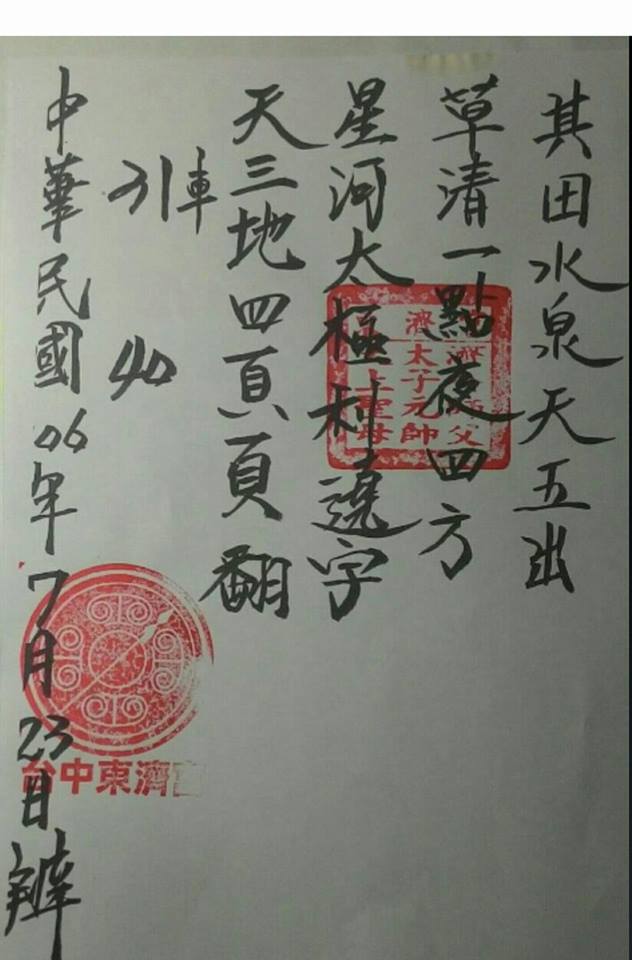 其田水泉天五出
草清一點夜四方
星河太極利遶字
天三地四頁頁翻
引車
40
中華民國06年7月23日辨
濟
太子元帥
上聖母
父
台中東濟宮